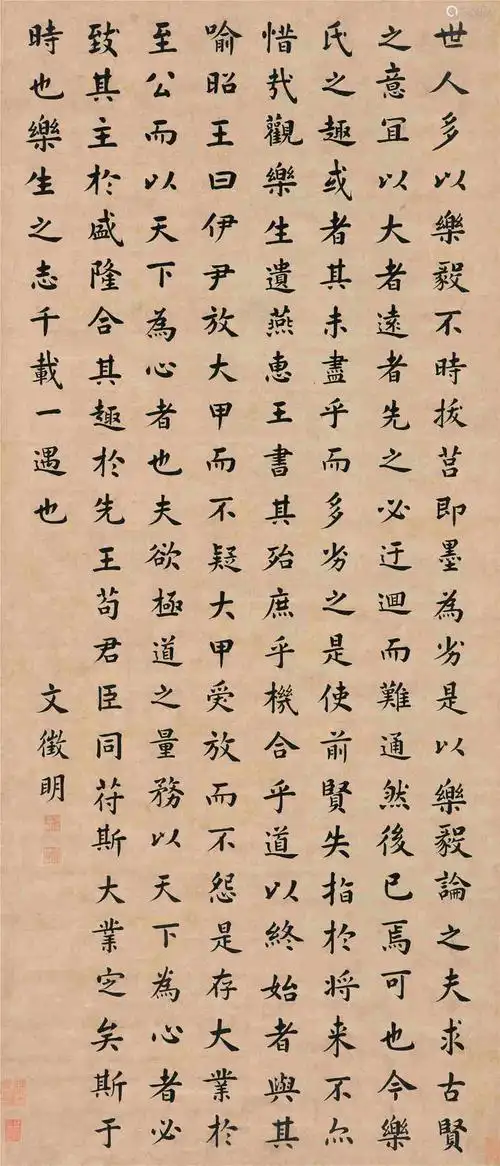 世人多以樂毅不時拔莒即墨為劣是以樂毅論之夫求古賢
之意宜以大者遠者先之必迂迴而難通然後已焉可也今樂
氏之趣或者其未盡乎而多劣之是使前賢失指於將来不尒
惜㢤觀樂生遺燕惠王書其殆庶乎機合乎道以終始者與其
喻昭王曰伊尹放大甲而不疑大甲受放而不怨是存大業於
至公而以天下為心者也夫欲極道之量務以天下為心者必
致其主於盛隆合其趣於先王苟君臣同苻斯大業定矣斯于
時也樂生之志千載一遇也
文徵明